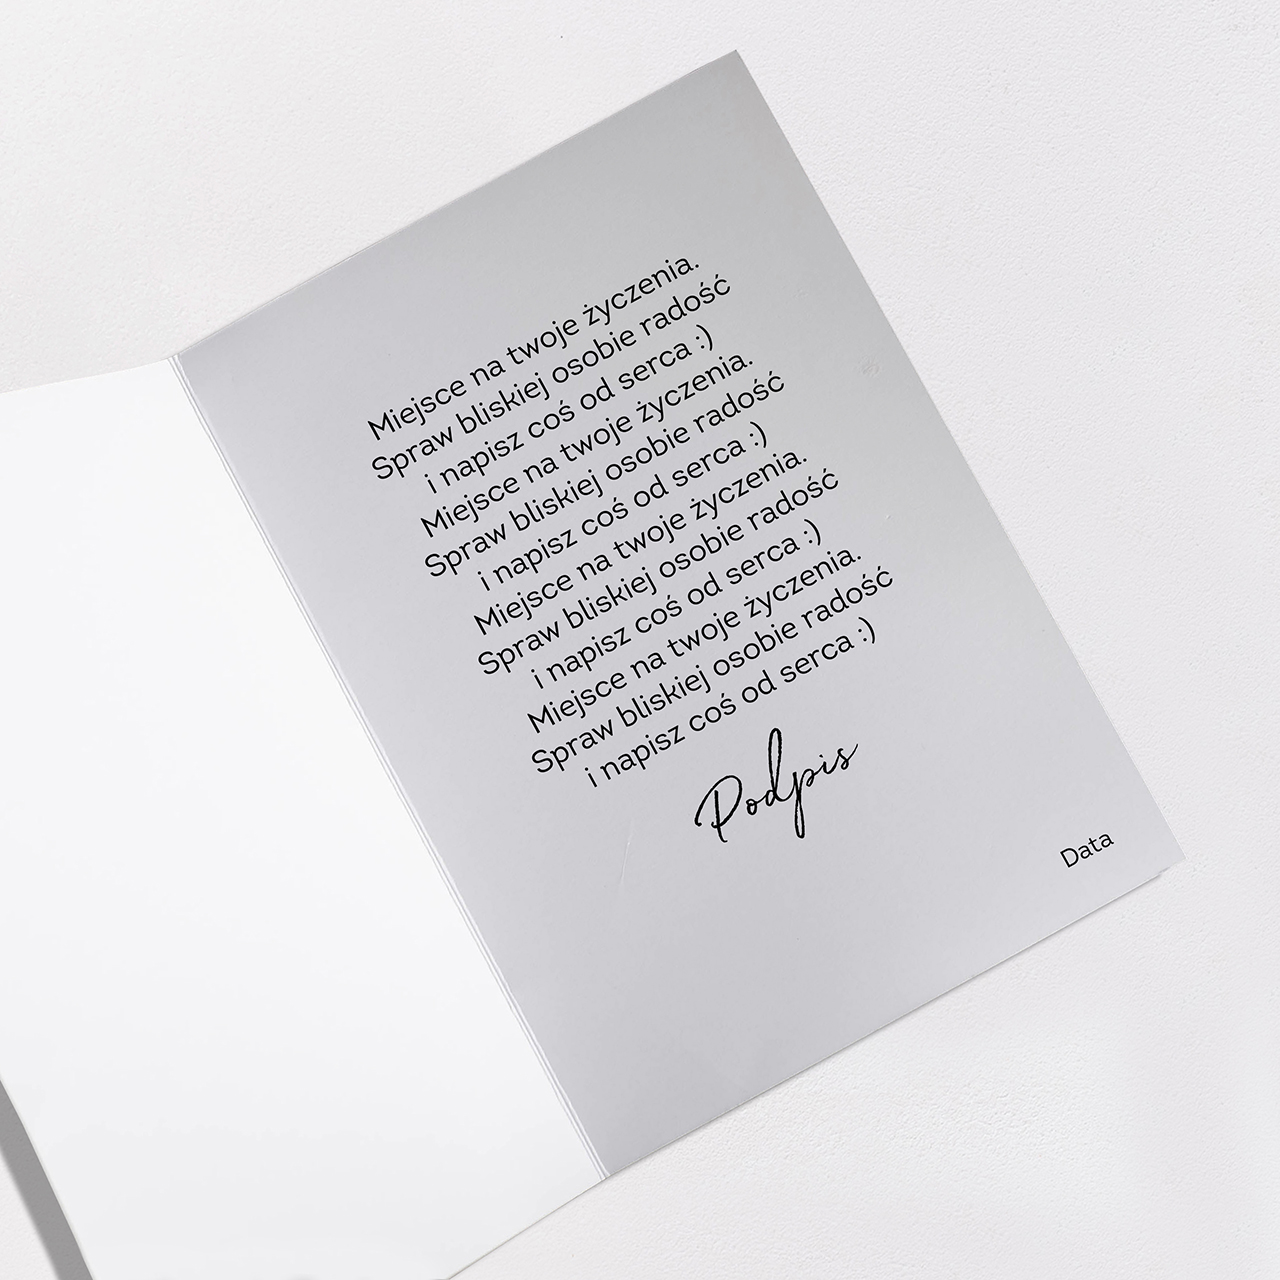 Miejsce na twoje życzenia.
Spraw bliskiej osobie radość
i napisz coś od serca :)
Miejsce na twoje życzenia.
Spraw bliskiej osobie radość
i napisz coś od serca :)
Miejsce na twoje życzenia.
Spraw bliskiej osobie radość
i napisz coś od serca :)
Miejsce na twoje życzenia.
Spraw bliskiej osobie radość
i napisz coś od serca :)
Podpis
Data